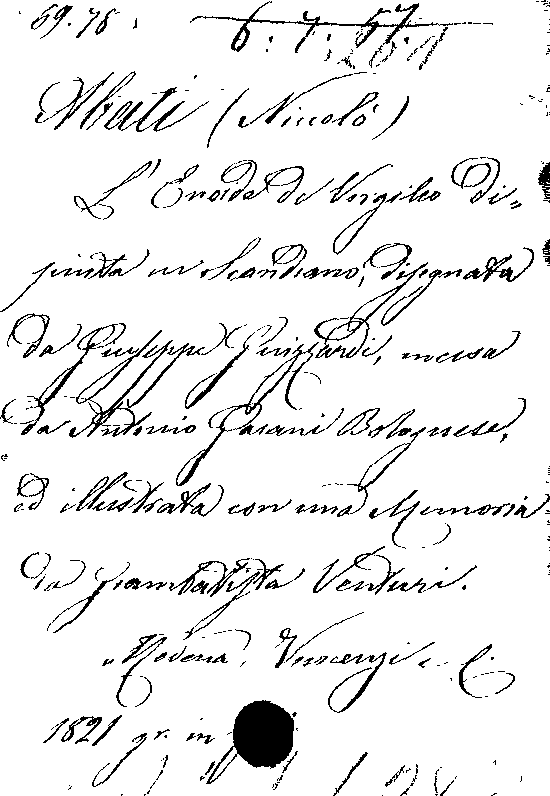 69.78.
6.7.57.
Abati (Niccolò)
L'Eneide di Virgilio di=
pinta in Scandiano, disegnata
da Giuseppe Guizzardi, incisa
da Antonio Gajani Bolognese,
ed illustrata con una Memoria
da Giambatista Venturi.
Modena, Vincenzi e C.
1821 gr. in